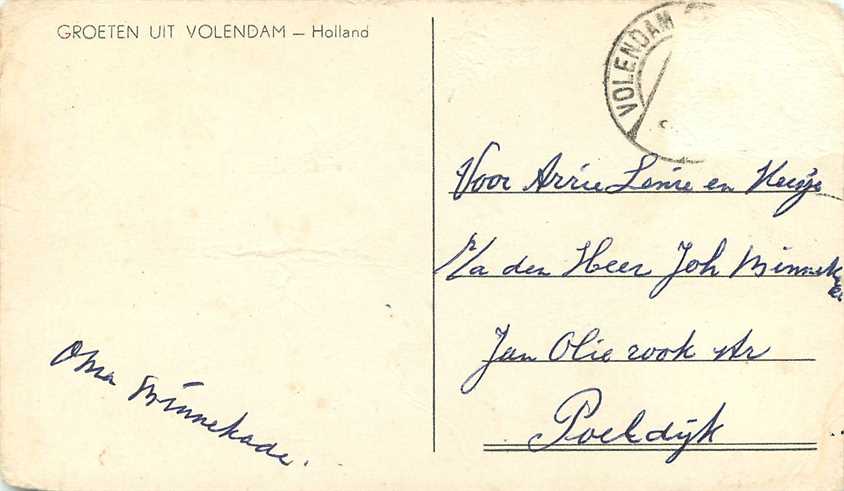 GROETEN UIT VOLENDAM — Holland
VOLENDAM
Voor Arrie Lenie en
P/a den Heer Joh Minnekade
Jan Olierook str
Poeldijk
Oma Minnekade.